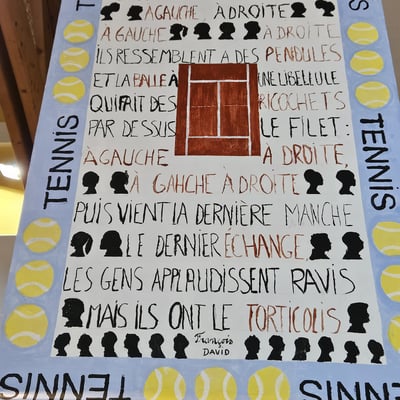 À GAUCHE À DROITE
À GAUCHE À DROITE
ILS RESSEMBLENT A DES PENDULES
ET LA BALLE À UNE LIBELLULE
QUI FAIT DES RICOCHETS
PAR DESSUS LE FILET :
À GAUCHE À DROITE,
À GAUCHE À DROITE
PUIS VIENT LA DERNIÈRE MANCHE
LE DERNIER ÉCHANGE
LES GENS APPLAUDISSENT RAVIS
MAIS ILS ONT LE TORTICOLIS
François
DAVID
TENNIS
TENNIS
TENNIS
TENNIS